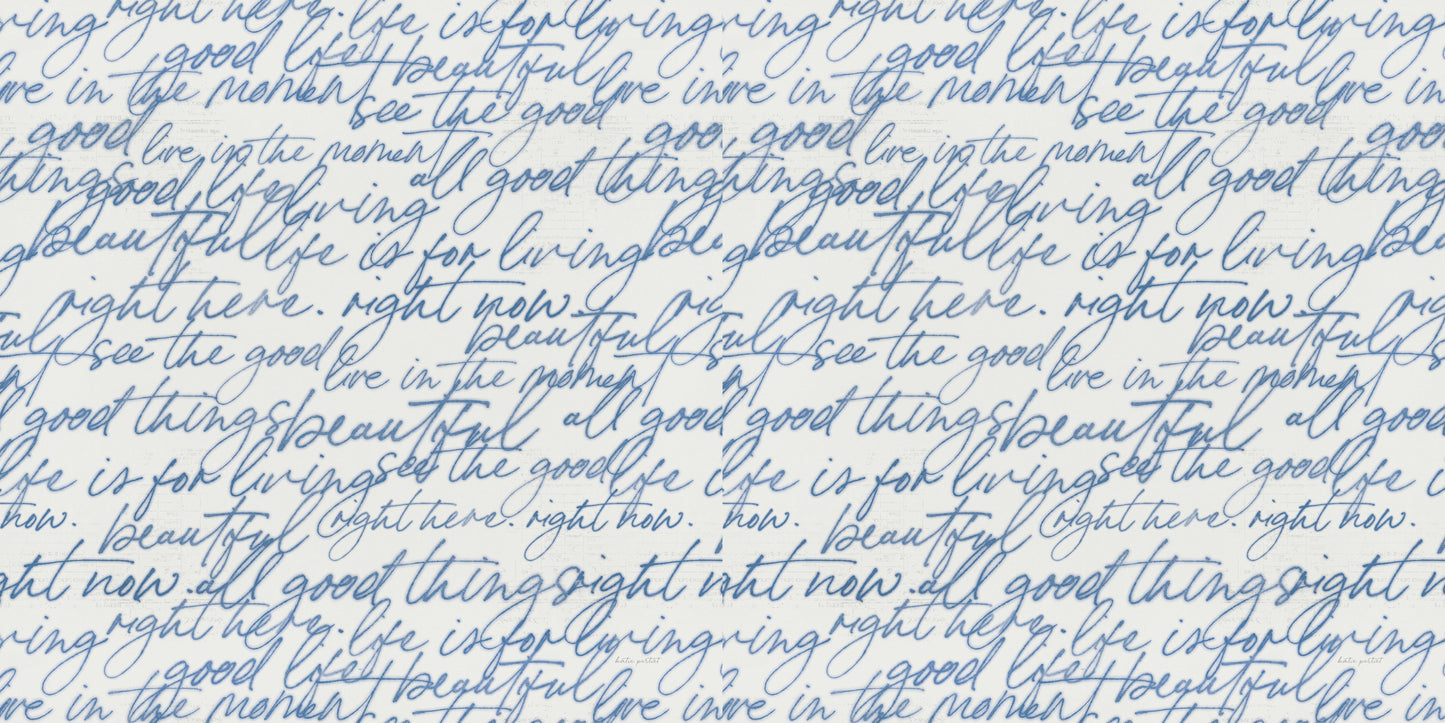 ving right here. life is for living ving right here. life is for living
good life beautiful good life beautiful
live in the moment live in live in the moment live in
see the good see the good
good good good good
live in the moment live in the moment
things all good things all good things
good life living good life living
beautiful life is for living beautiful life is for living
right here. right now. right here. right now.
beautiful beautiful
see the good see the good
live in the moment live in the moment
good things beautiful all good things beautiful all good
life is for living see the good life is for living see the good life
now. right here. right now. now. right here. right now.
beautiful beautiful
right now. all good things right now. all good things right
ving right here. life is for living ving right here. life is for living
katie pertiet katie pertiet
good life beautiful good life beautiful
live in the moment live in live in the moment live in